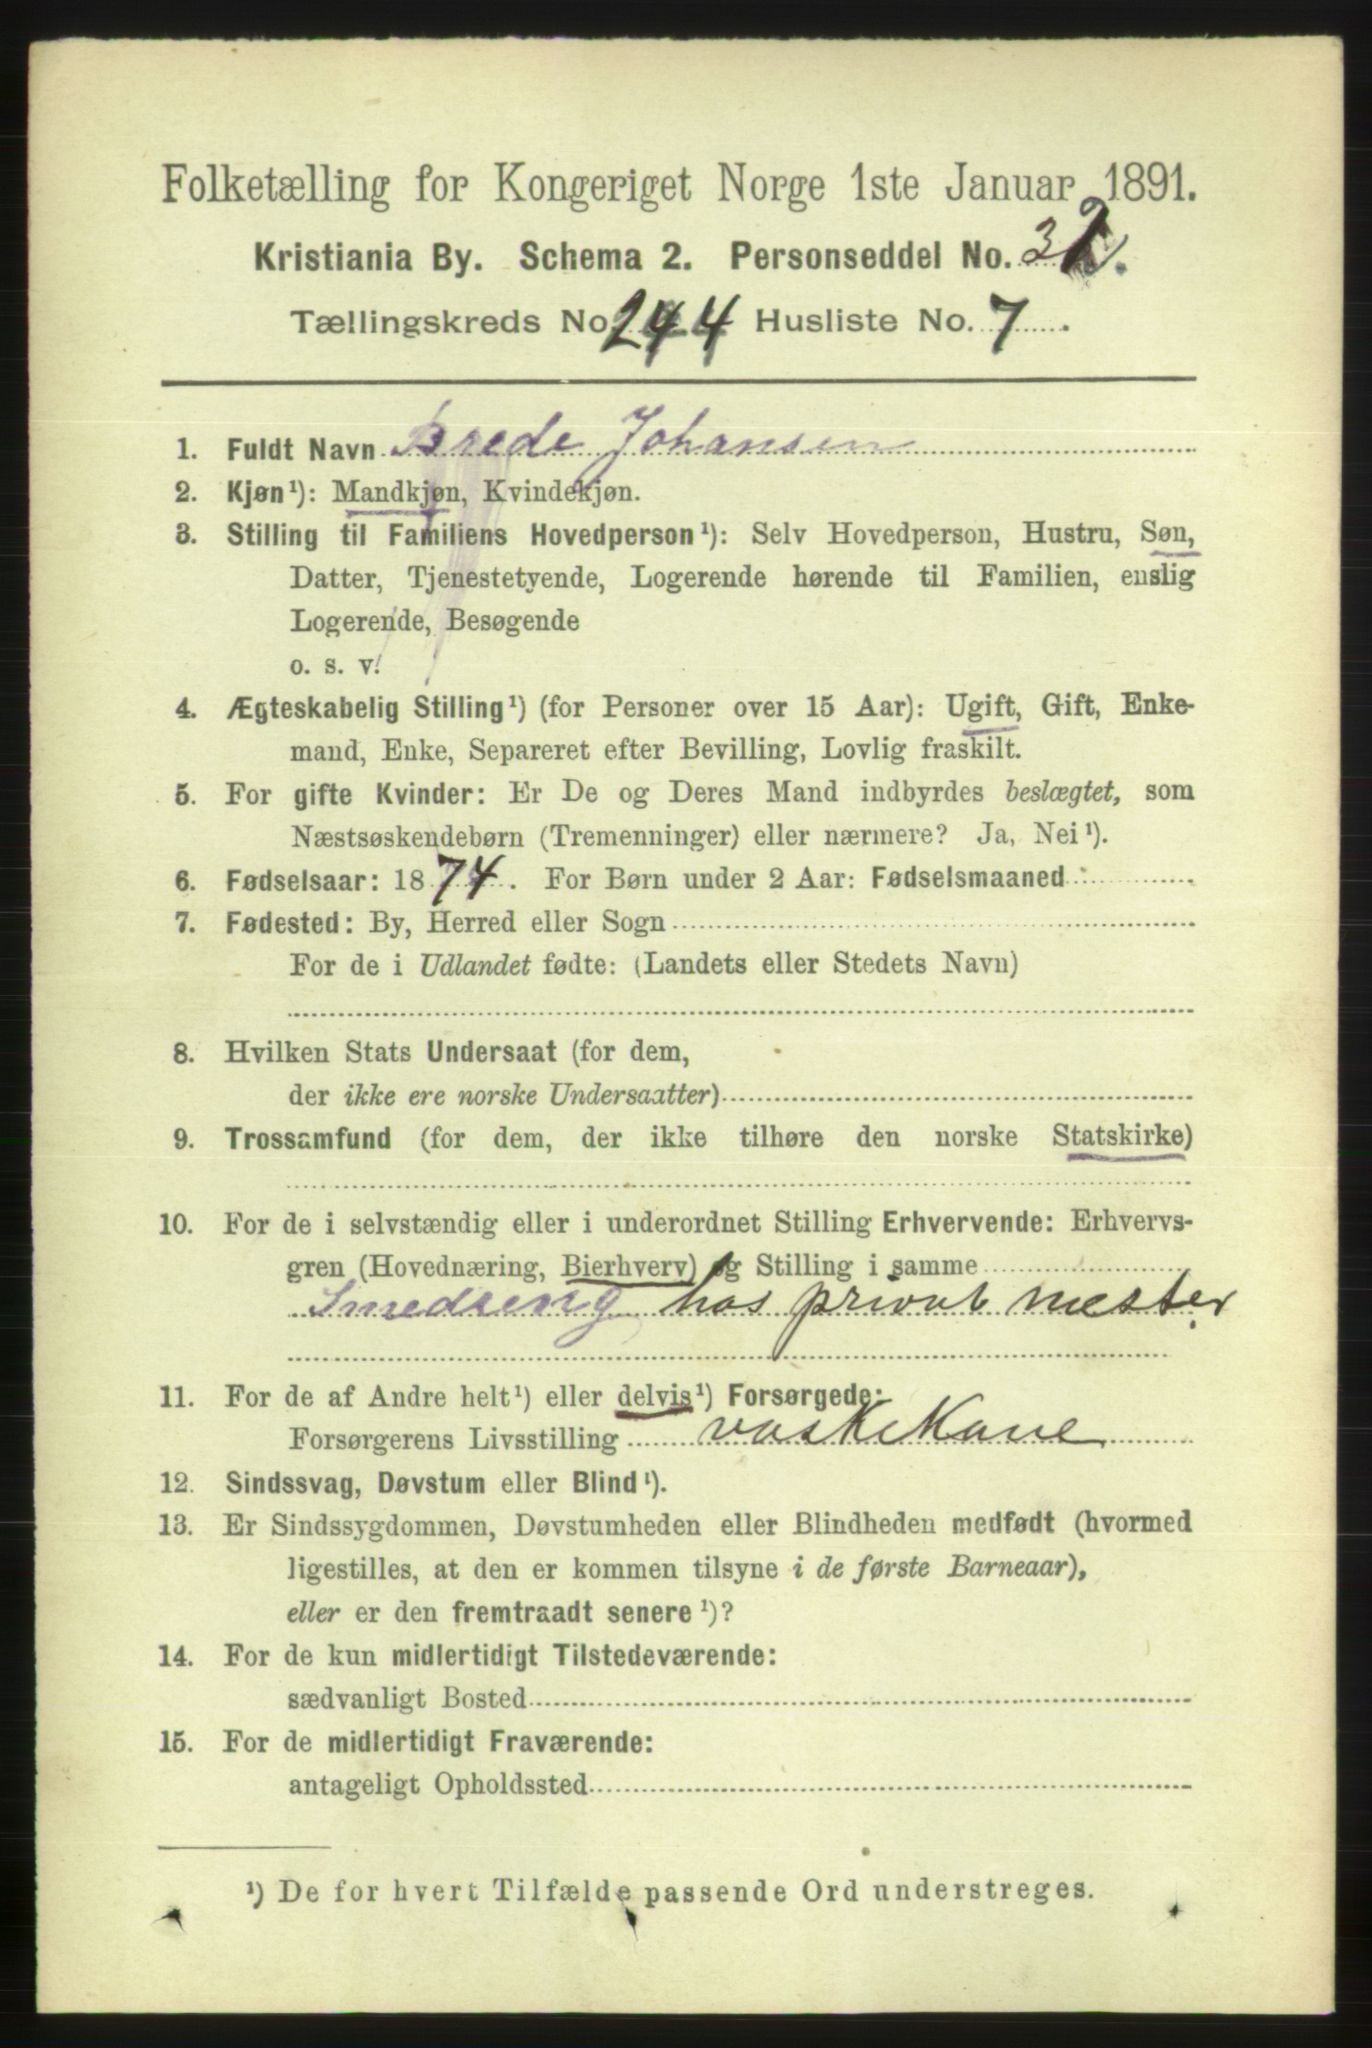 Folketælling for Kongeriget Norge 1ste Januar 1891.
Kristiania By. Schema 2. Personseddel No. 32.
Tællingskreds No. 244 Husliste No. 7.
1. Fuldt Navn Brede Johansen
2. Kjøn¹): Mandkjøn, Kvindekjøn.
3. Stilling til Familiens Hovedperson¹): Selv Hovedperson, Hustru, Søn,
Datter, Tjenestetyende, Logerende hørende til Familien, enslig
Logerende, Besøgende
o. s. v.
4. Ægteskabelig Stilling¹) (for Personer over 15 Aar): Ugift, Gift, Enke-
mand, Enke, Separeret efter Bevilling, Lovlig fraskilt.
5. For gifte Kvinder: Er De og Deres Mand indbyrdes beslægtet, som
Næstsøskendebørn (Tremenninger) eller nærmere? Ja, Nei¹).
6. Fødselsaar: 1874. For Børn under 2 Aar: Fødselsmaaned
7. Fødested: By, Herred eller Sogn
For de i Udlandet fødte: (Landets eller Stedets Navn)
8. Hvilken Stats Undersaat (for dem,
der ikke ere norske Undersaatter)
9. Trossamfund (for dem, der ikke tilhøre den norske Statskirke)
10. For de i selvstændig eller i underordnet Stilling Erhvervende: Erhvervs-
gren (Hovednæring, Bierhverv) og Stilling i samme
Smedseng hos privat mester
11. For de af Andre helt¹) eller delvis¹) Forsørgede:
Forsørgerens Livsstilling vaskekone
12. Sindssvag, Døvstum eller Blind¹).
13. Er Sindssygdommen, Døvstumheden eller Blindheden medfødt (hvormed
ligestilles, at den er kommen tilsyne i de første Barneaar),
eller er den fremtraadt senere¹)?
14. For de kun midlertidigt Tilstedeværende:
sædvanligt Bosted
15. For de midlertidigt Fraværende:
antageligt Opholdssted
¹) De for hvert Tilfælde passende Ord understreges.